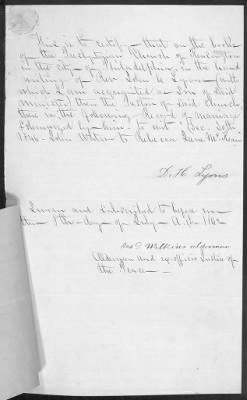 This is to certify — that on the book
of the Presbyterian Church of Kensington
in the City of Philadelphia in the hand
writing of Rev John H. Lyons (with
which I am acquainted as Son of Said
Minister) then the Pastor of Said Church
there is the following Record of marriage
Solemnized by him — to wit "Dec. 20th
1846 John Wilson to Rebecca Jane McKean
D. H. Lyons
Sworn and Subscribed to before me
this 8th day of July A.D. 1862
Jos. D. Wilkins alderman
Alderman and ex-officio Justice of
the Peace —